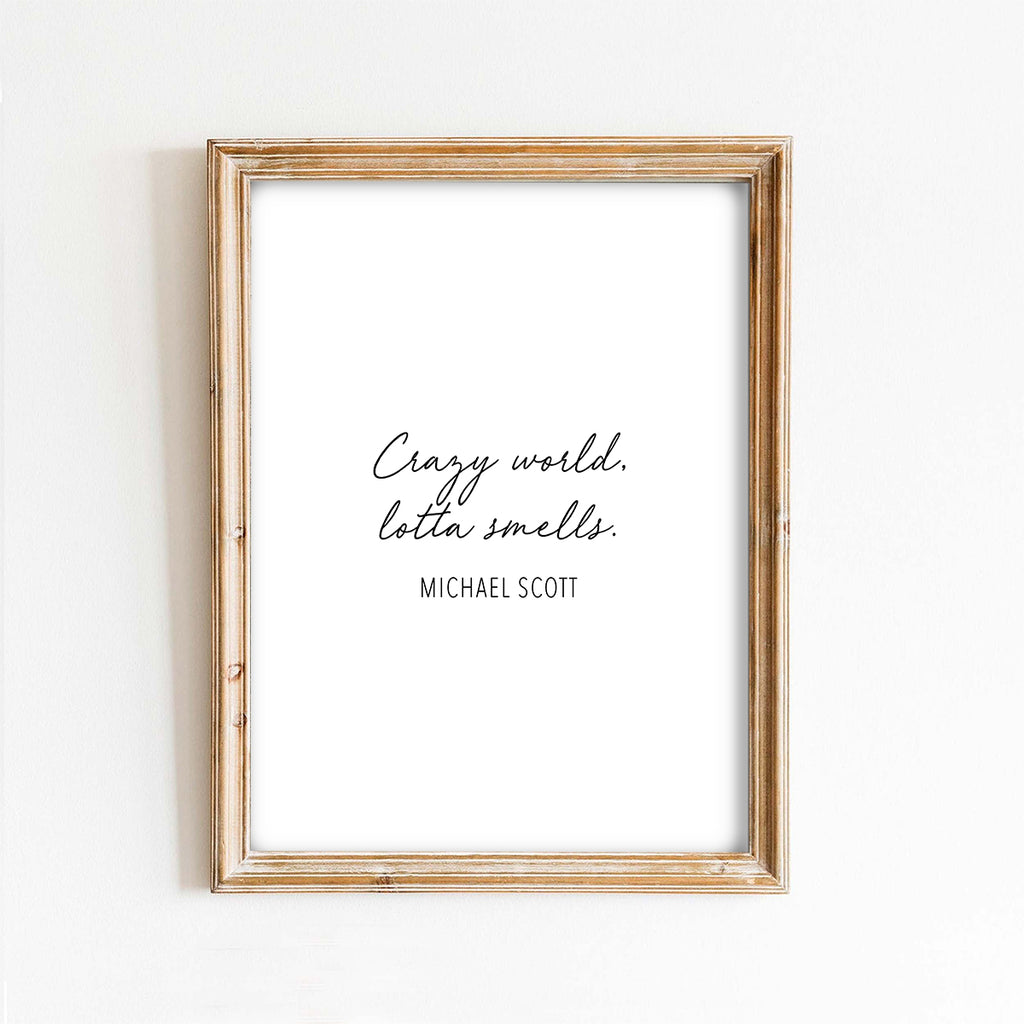 Crazy world,
lotta smells.
MICHAEL SCOTT